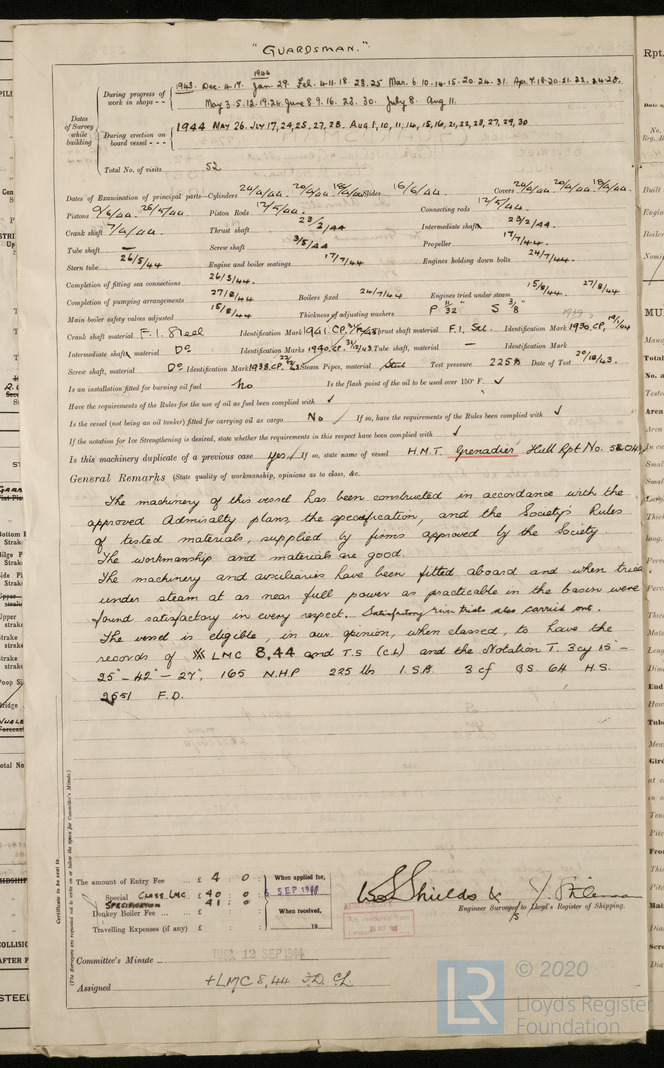 "GUARDSMAN."
Dates of Survey while building
During progress of work in shops - -
1943. Dec. 4.17. 1944 Jan. 29. Feb. 4.11.18.23.25 Mar. 6.10.14.15.20.24.31. Apr 7.18.20.21.22.24.28.
May 3.5.12.19.26. June 8.9.16.23.30. July 8. Aug 11.
During erection on board vessel - - -
1944 MAY 26. JULY 17,24,25,27,28. AUG 1,10,11,14,15,16,21,22,28,27,29,30
Total No. of visits 52
Dates of Examination of principal parts—Cylinders Slides 16/6/44. Covers
Pistons 9/6/44. 26/5/44. Piston Rods 12/5/44. Connecting rods 12/5/44.
Crank shaft 7/4/44. Thrust shaft 23/2/44 Intermediate shaft 23/2/44.
Tube shaft — Screw shaft 3/5/44 Propeller 17/7/44.
Stern tube 26/5/44 Engine and boiler seatings 17/7/44 Engines holding down bolts 24/7/44.
Completion of fitting sea connections 26/5/44
Completion of pumping arrangements 27/8/44 Boilers fixed 24/7/44 Engines tried under steam 15/8/44. 27/8/44
Main boiler safety valves adjusted 15/8/44 Thickness of adjusting washers P 11/32" S 3/8"
Crank shaft material F.I. Steel Identification Mark 1941.CP. Thrust shaft material F.I. Stl. Identification Mark 1930.CP.
Intermediate shafts, material Do Identification Marks 1940.CP. Tube shaft, material — Identification Mark
Screw shaft, material Do Identification Mark 1938.CP. Steam Pipes, material Steel Test pressure 225 lb Date of Test 20/12/43.
Is an installation fitted for burning oil fuel No Is the flash point of the oil to be used over 150° F. ✓
Have the requirements of the Rules for the use of oil as fuel been complied with ✓
Is the vessel (not being an oil tanker) fitted for carrying oil as cargo No If so, have the requirements of the Rules been complied with ✓
If the notation for Ice Strengthening is desired, state whether the requirements in this respect have been complied with ✓
Is this machinery duplicate of a previous case Yes If so, state name of vessel H.M.T. Grenadier Hull Rpt No.
General Remarks (State quality of workmanship, opinions as to class, &c.
The machinery of this vessel has been constructed in accordance with the
approved Admiralty plans, the specification, and the Society's Rules
of tested materials, supplied by firms approved by the Society.
The workmanship and materials are good.
The machinery and auxiliaries have been fitted aboard and when tried
under steam at as near full power as practicable in the basin were
found satisfactory in every respect. Satisfactory river trials also carried out.
The vessel is eligible, in our opinion, when classed, to have the
records of LMC 8,44 and T.S (CL) and the Notation T. 3cy 15"-
25"-42"-27", 165 N.H.P 225 lbs 1.S.B 3 cf G.S. 64 H.S.
2551 F.D.
Certificate to be sent to
(The Surveyors are requested not to write on or below the space for Committee's Minute.)
The amount of Entry Fee ... £ 4 : 0 :
Special CLASS LMC £ 40 : 0 :
SPECIFICATION 41 : 0 :
Donkey Boiler Fee ... £
Travelling Expenses (if any) £
When applied for,
6 SEP 1944
When received,
19
Engineer Surveyor to Lloyd's Register of Shipping.
Committee's Minute TUES. 12 SEP 1944
Assigned +LMC 8,44 F.D. CL
LR
© 2020
Lloyd's Register
Foundation